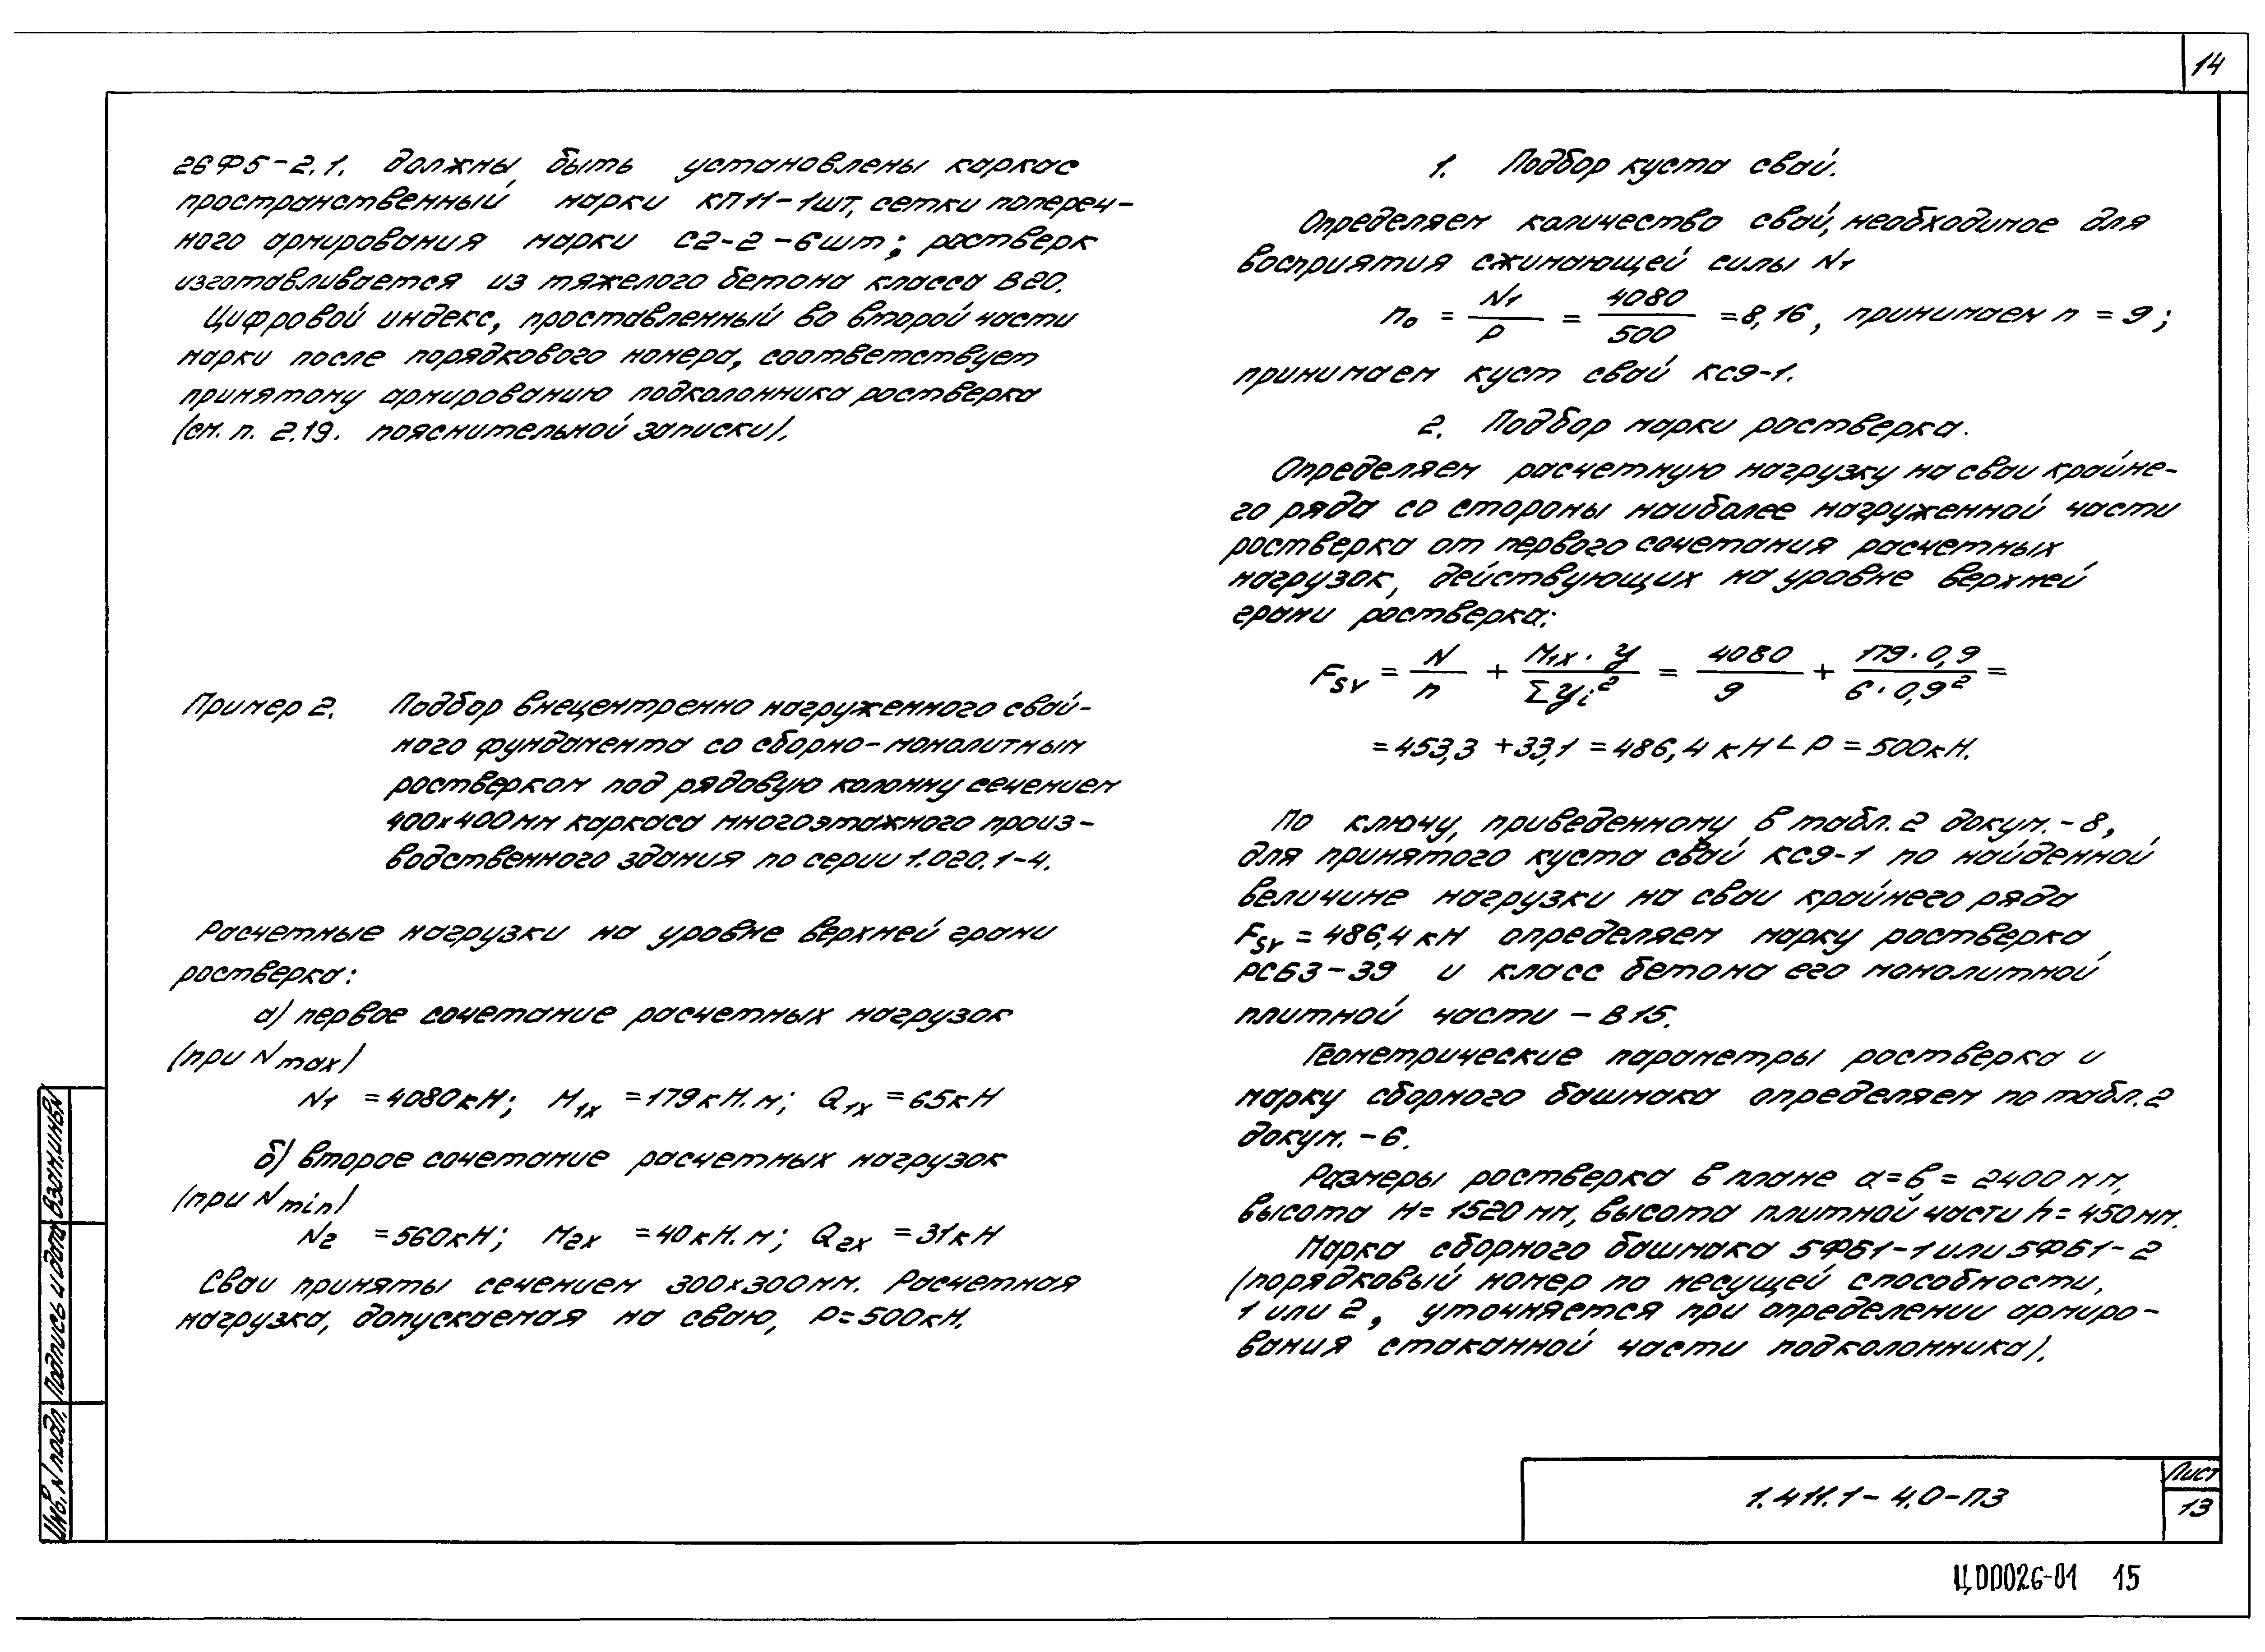 14
26Ф5-2.1. должны быть установлены каркас
пространственный марки КП11-1шт, сетки попереч-
ного армирования марки С2-2-6шт; ростверк
изготавливается из тяжелого бетона класса В20.
Цифровой индекс, проставленный во второй части
марки после порядкового номера, соответствует
принятому армированию подколонника ростверка
(см. п. 2.19. пояснительной записки).
Пример 2. Подбор внецентренно нагруженного свай-
ного фундамента со сборно-монолитным
ростверком под рядовую колонну сечением
400х400мм каркаса многоэтажного произ-
водственного здания по серии 1.020.1-4.
Расчетные нагрузки на уровне верхней грани
ростверка:
а) первое сочетание расчетных нагрузок
(при N max)
N1 = 4080кН; M1x = 179кН.м; Q1x = 65кН
б) второе сочетание расчетных нагрузок
(при N min)
N2 = 560кН; M2x = 40кН.м; Q2x = 31кН
Сваи приняты сечением 300х300мм. Расчетная
нагрузка, допускаемая на сваю, Р=500кН.
1. Подбор куста свай.
Определяем количество свай, необходимое для
восприятия сжимающей силы N1
n₀ = N1/P = 4080/500 = 8,16, принимаем n = 9;
принимаем куст свай КС9-1.
2. Подбор марки ростверка.
Определяем расчетную нагрузку на сваи крайне-
го ряда со стороны наиболее нагруженной части
ростверка от первого сочетания расчетных
нагрузок, действующих на уровне верхней
грани ростверка:
Fsv = N/n + M1x · y/Σyi² = 4080/9 + 179·0,9/6·0,9² =
= 453,3 + 33,1 = 486,4 кН < P = 500кН.
По ключу, приведенному в табл. 2 докум. -8,
для принятого куста свай КС9-1 по найденной
величине нагрузки на сваи крайнего ряда
Fsv = 486,4 кН определяем марку ростверка
РС63-39 и класс бетона его монолитной
плитной части - В15.
Геометрические параметры ростверка и
марку сборного башмака определяем по табл. 2
докум. -6.
Размеры ростверка в плане а=в= 2400мм,
высота Н= 1520мм, высота плитной части h= 450мм.
Марка сборного башмака 5ФБ1-1 или 5ФБ1-2
(порядковый номер по несущей способности,
1 или 2, уточняется при определении армиро-
вания стаканной части подколонника).
Инв. N подл. Подпись и дата Взам.инв.N
1.411.1-4.0-ПЗ
Лист
13
Ц00026-01 15